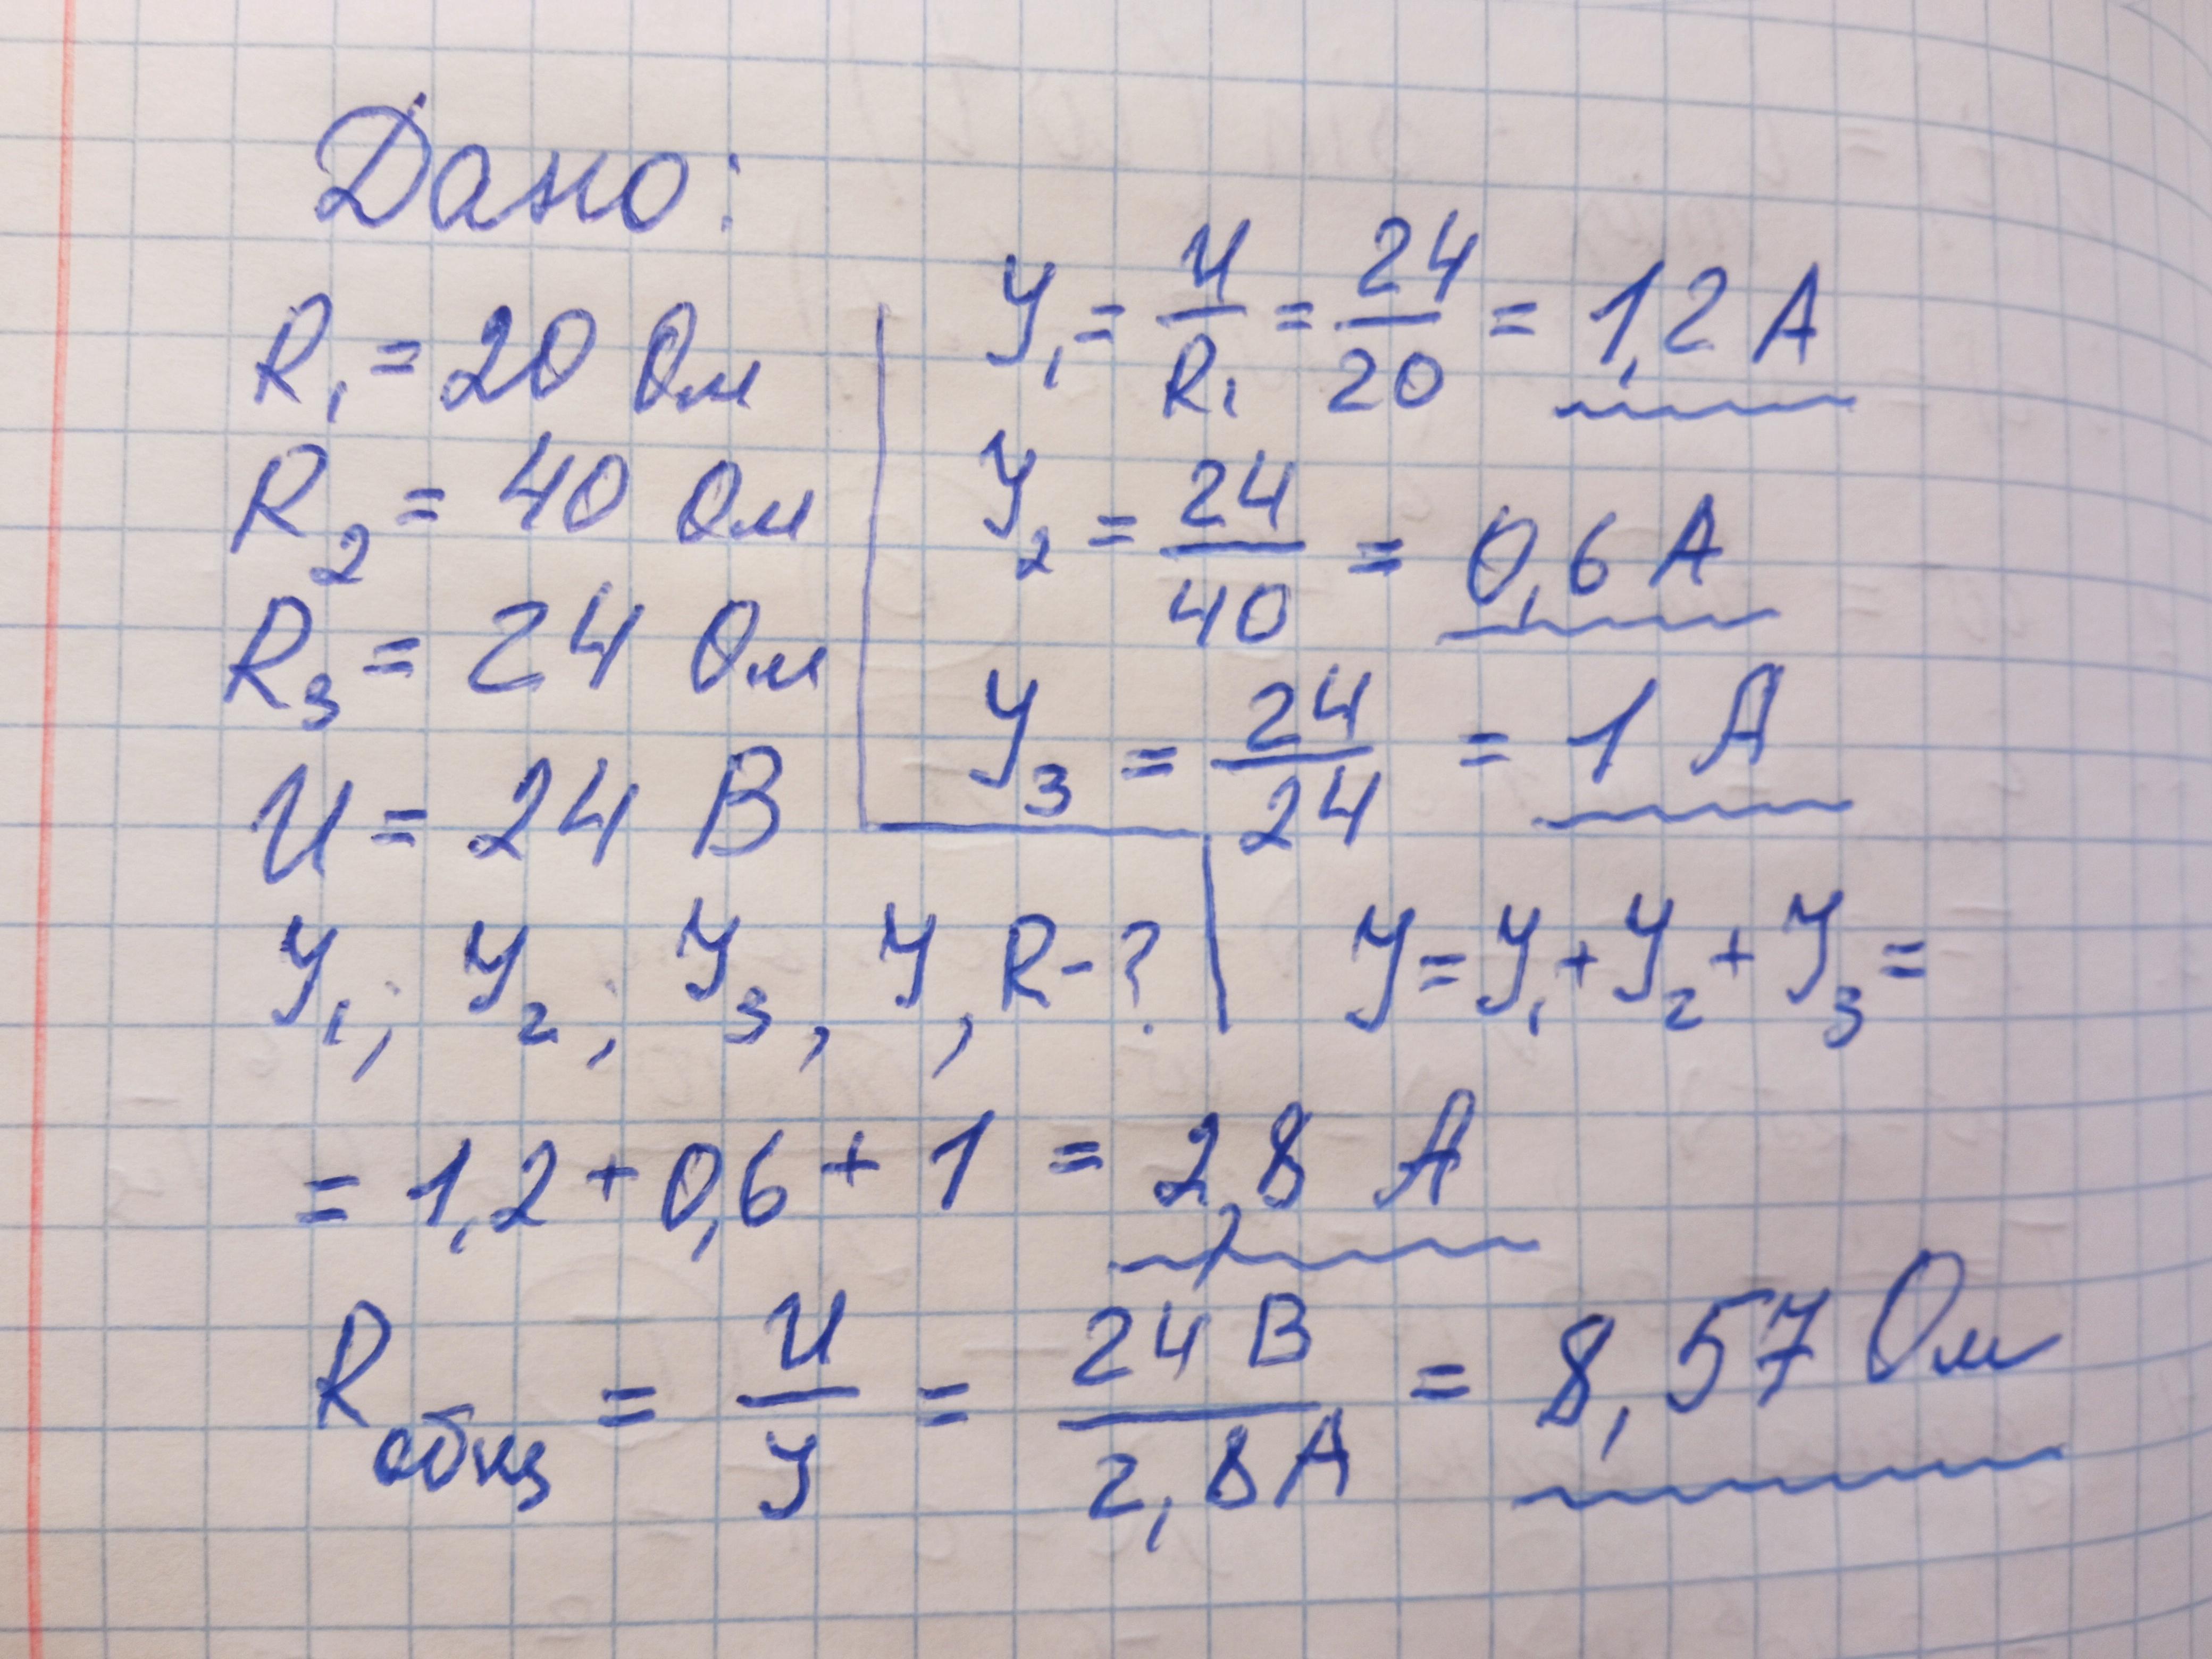 Дано:
R₁ = 20 Ом
R₂ = 40 Ом
R₃ = 24 Ом
U = 24 В
У₁, У₂, У₃, У, R-?
У₁ = U/R₁ = 24/20 = 1,2 А
У₂ = 24/40 = 0,6 А
У₃ = 24/24 = 1 А
У = У₁ + У₂ + У₃ =
= 1,2 + 0,6 + 1 = 2,8 А
R общ = U/У = 24 В/2,8 А = 8,57 Ом